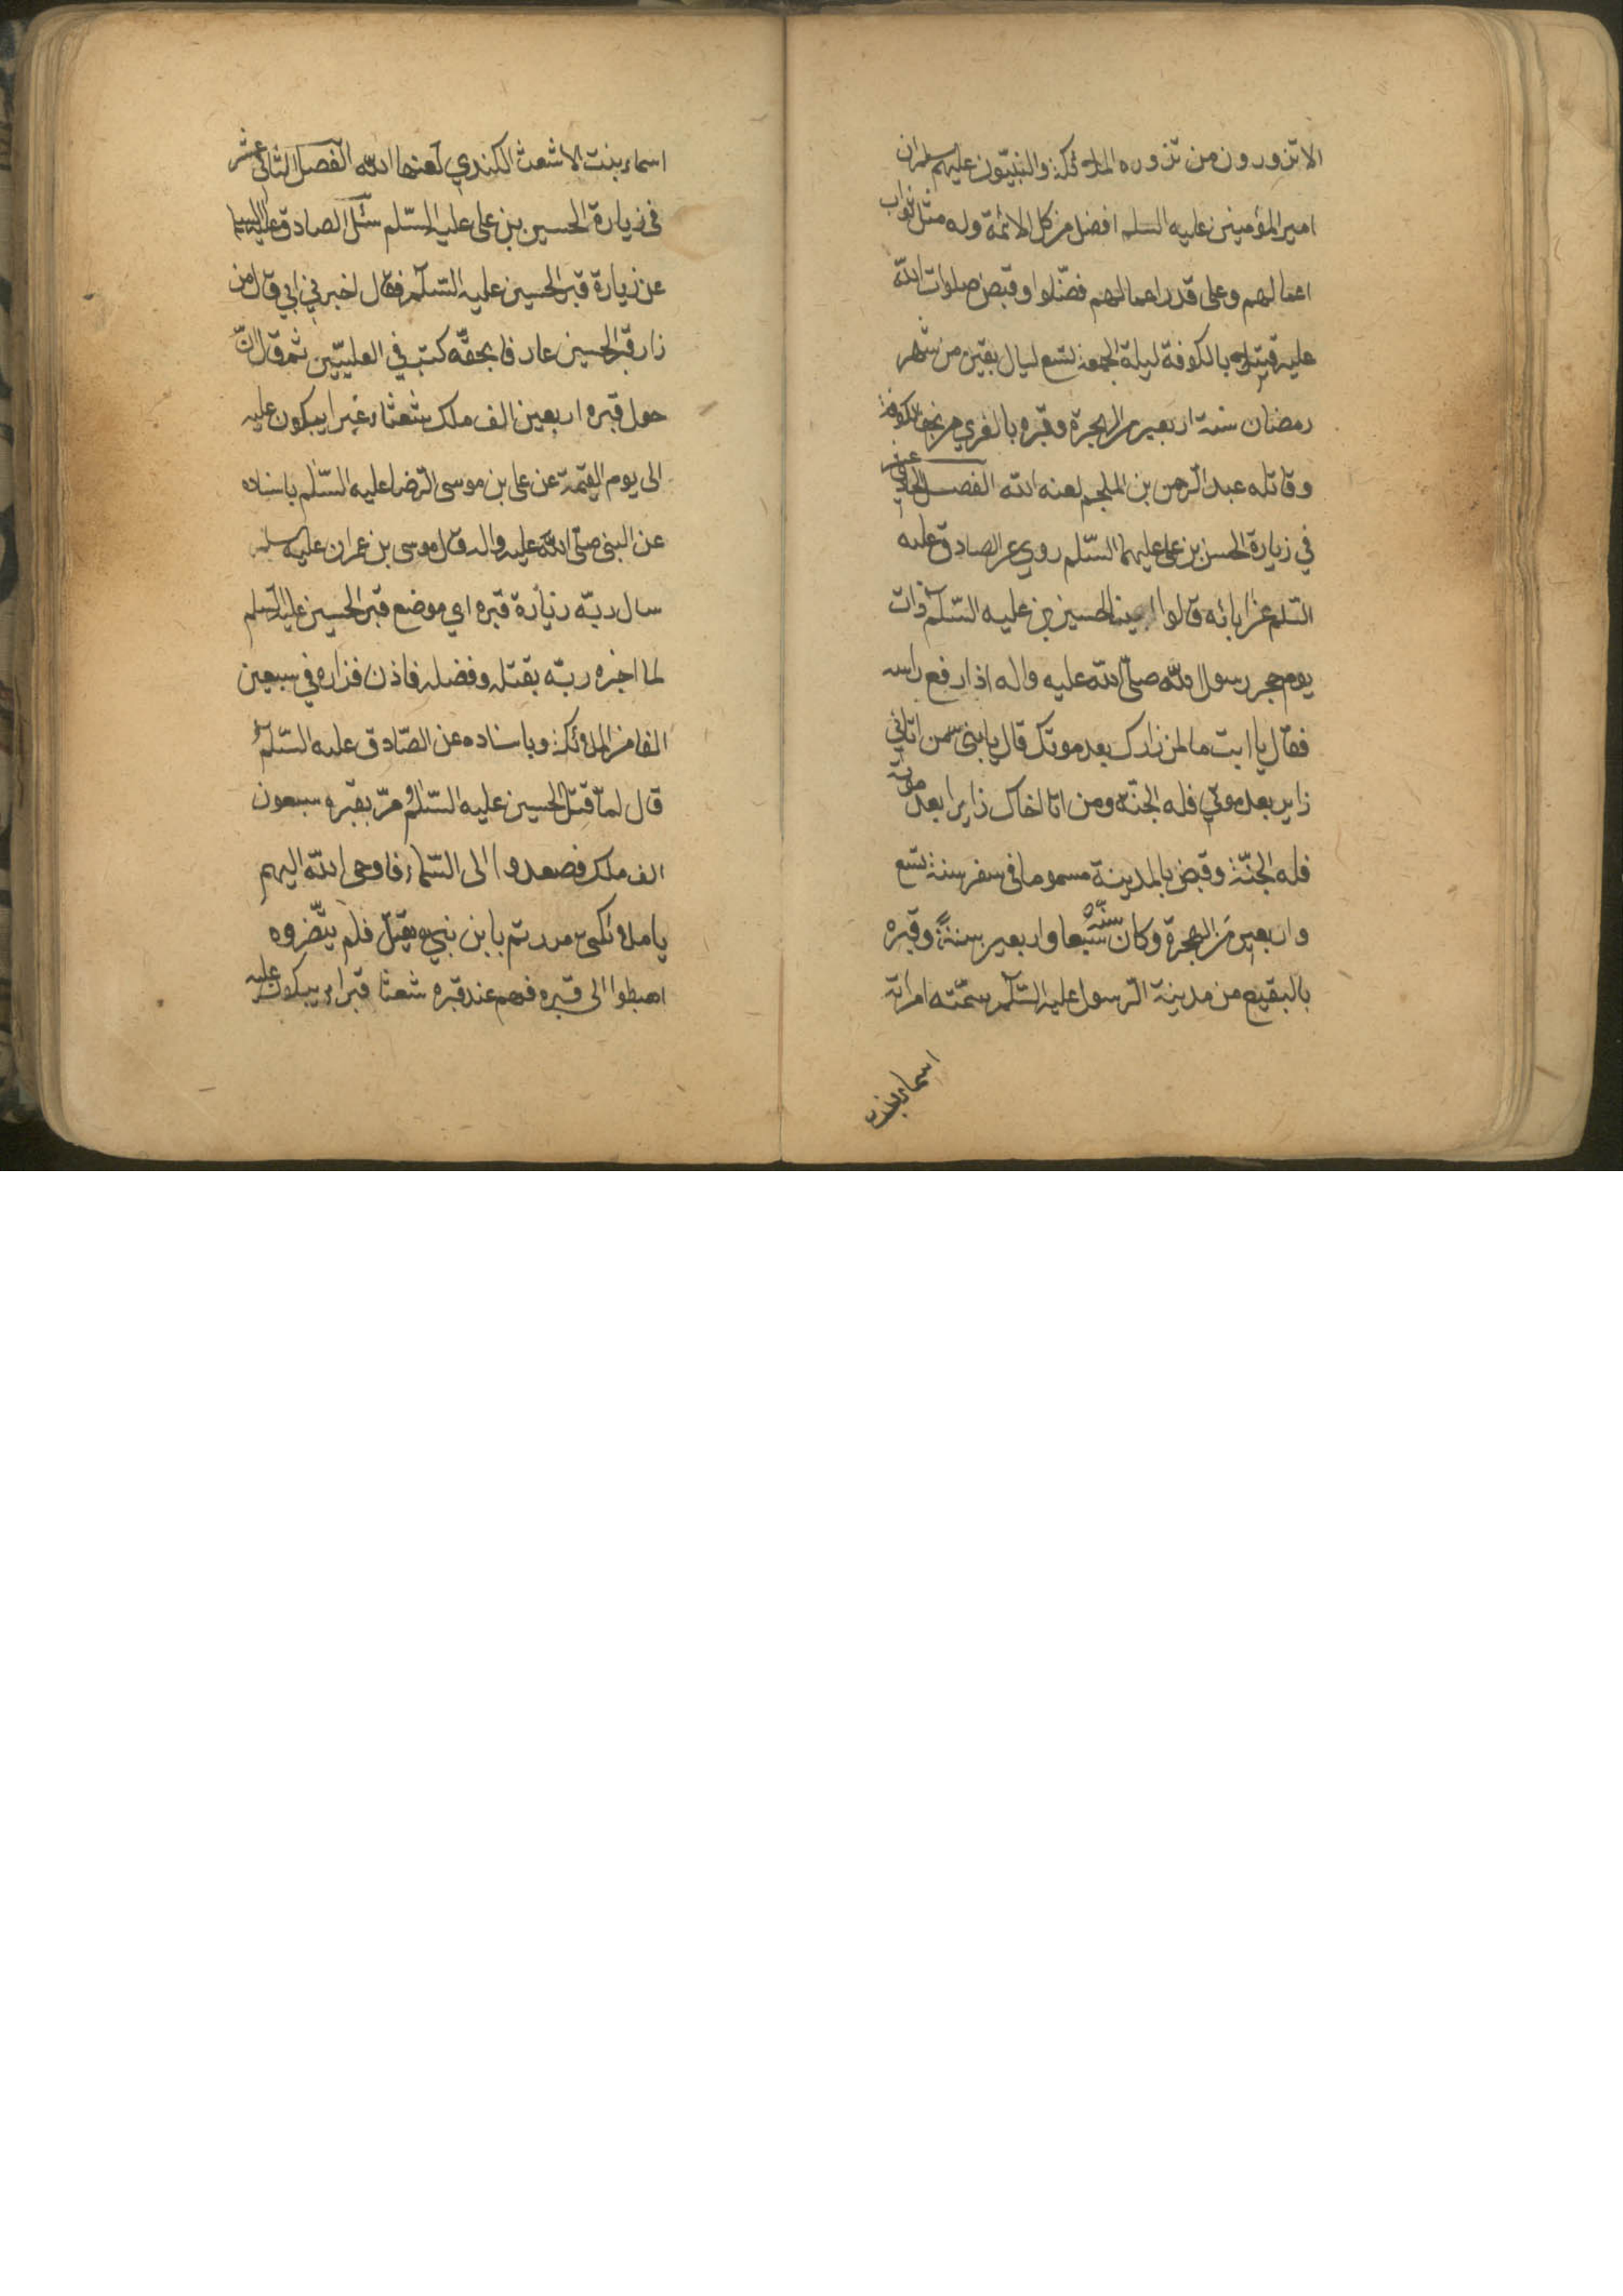 الا تزورون من تزوره الملائكة والنبيّون عليهم سلم ان
امير المؤمنين عليه السلم افضل من كل الائمة وله مثل ثواب
اعمالهم وعلى قدر اعمالهم فضّلوا وقبض صلوات الله
عليه قتيلا بالكوفة ليلة الجمعة لتسع ليال بقين من شهر
رمضان سنة اربعين من الهجرة وقبره بالغري من نجف الكوفة
وقاتله عبد الرحمن بن الملجم لعنه الله الفصل الحادي عشر
في زيارة الحسن بن على عليهما السّلم روي عن الصادق عليه
السّلم عن ابائه قالوا بينا الحسين بن عليه السّلم ذات
يوم حجر رسول الله صلّى الله عليه واله اذا رفع راسه
فقال يا ابت ما لمن زارك بعد موتك قال يا بنى من اتاني
زاير بعد موتي فله الجنّة ومن اتا اخاك زايرا بعد موته
فله الجنّة وقبض بالمدينة مسموما فى سفر سنة تسع
واربعين من الهجرة وكان سنّه سبعا واربعين سنة وقبره
بالبقيع من مدينة الرسول عليه السّلم سمّته امراته
اسماء بنت
اسماء بنت الاشعث الكندي لعنها الله الفصل الثاني عشر
فى زيارة الحسين بن على عليه السّلم سئل الصادق عليه السلم
عن زيارة قبر الحسين عليه السّلم فقال اخبرني ابي قال من
زار قبر الحسين عارفا بحقّه كتب في العليّين ثم قال انّ
حول قبره اربعين الف ملك شعثا غبرا يبكون عليه
الى يوم القيمة عن على بن موسى الرّضا عليه السّلم باسناده
عن النبى صلّى الله عليه واله قال موسى بن عمران عليه سلم
سال ربّه زيارة قبره اي موضع قبر الحسين عليه السلم
لما اخبره ربّه بقتله وفضله فاذن فزاره في سبعين
الفا من الملائكة وباسناده عن الصّادق عليه السّلم
قال لمّا قتل الحسين عليه السّلم مرّ بقبره سبعون
الف ملك فصعدوا الى السّماء فاوحى الله اليهم
يا ملائكتى مررتم بابن نبي يقتل فلم ينصروه
اهبطوا الى قبره فهم عند قبره شعثا قبرا يبكون عليه